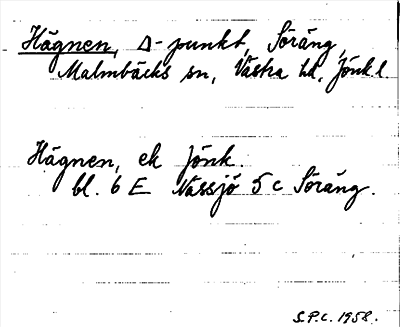 Hägnen, Δ-punkt, Söräng,
Malmbäcks sn, Västra hd, Jönk.l.
Hägnen, ek Jönk.
bl. 6 E Nässjö 5 c Söräng.
S.P.C. 1958.